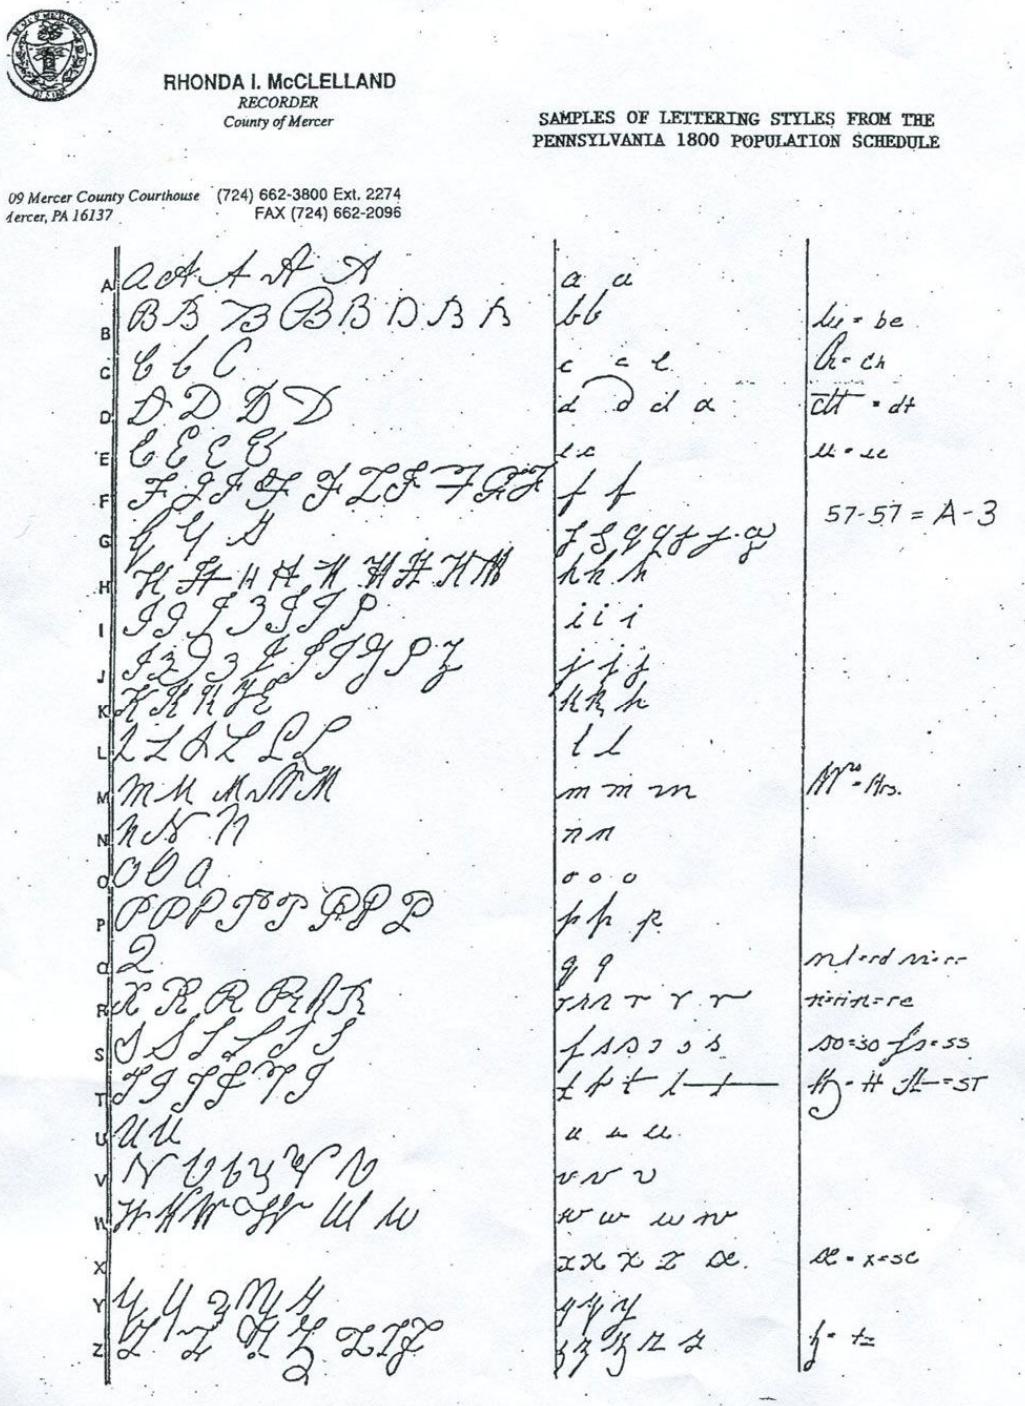 RHONDA I. McCLELLAND
RECORDER
County of Mercer
SAMPLES OF LETTERING STYLES FROM THE
PENNSYLVANIA 1800 POPULATION SCHEDULE
09 Mercer County Courthouse (724) 662-3800 Ext. 2274
Mercer, PA 16137 FAX (724) 662-2096
A a A A A A a a
B B B B B B B B B b b be = be
C C C C c c c ch = ch
D D D D D d d d d dt = dt
E E E E E e e ee = ee
F F F F F F F F F F F f f
57-57 = A-3
G G G G g g g g g g g
H H H H H H H H H H h h h
I I I I I I I I i i i
J J J J J J J J J J J j j j
K K K K K k k k
L L L L L L L l l
M M M M M M m m m Mrs = Mrs.
N N N N n n
O O O O o o o
P P P P P P P P P p p p
Q Q q q rd = rd rr = rr
R R R R R R R r r r r r r re = re
S S S S S S S s s s s s s so = so ss = ss
T T T T T T T t t t t t tt = tt st = ST
U U U u u u
V V V V V V V v v v
W W W W W W W w w w w
X x x x x x x = x = sc
Y Y Y Y Y Y y y y
Z Z Z Z Z Z Z Z z z z z z tz = tz